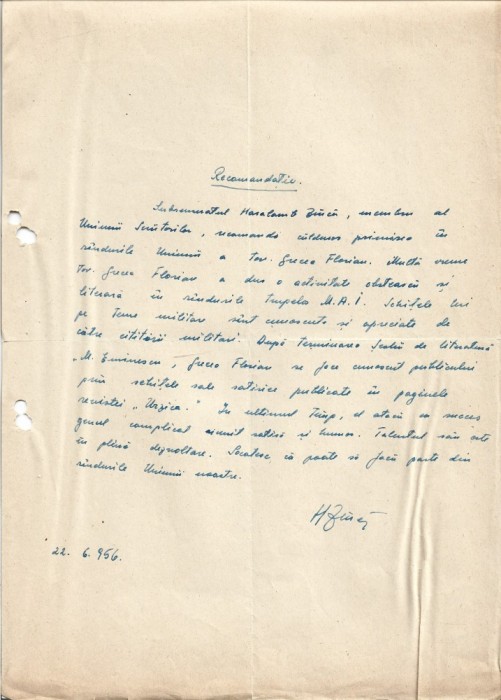 Recomandație.
Subsemnatul Haralamb Zincă, membru al
Uniunii Scriitorilor, recomandă călduros primirea în
rândurile Uniunii a tov. Grecea Florian. Multă vreme
tov. Grecea Florian a dus o activitate obștească și
literară în rândurile trupelor M.A.I. Schițele lui
pe teme militare sînt cunoscute și apreciate de
către cititorii militari. După terminarea Școlii de literatură
„M. Eminescu, Grecea Florian se face cunoscut publicului
prin schițele sale satirice publicate în paginele
revistei „Urzica." In ultimul timp, el atacă cu succes
genul complicat satiră și humor. Talentul său este
în plină dezvoltare. Socotesc că poate să facă parte din
rândurile Uniunii noastre.
HZincă
22. 6. 956.